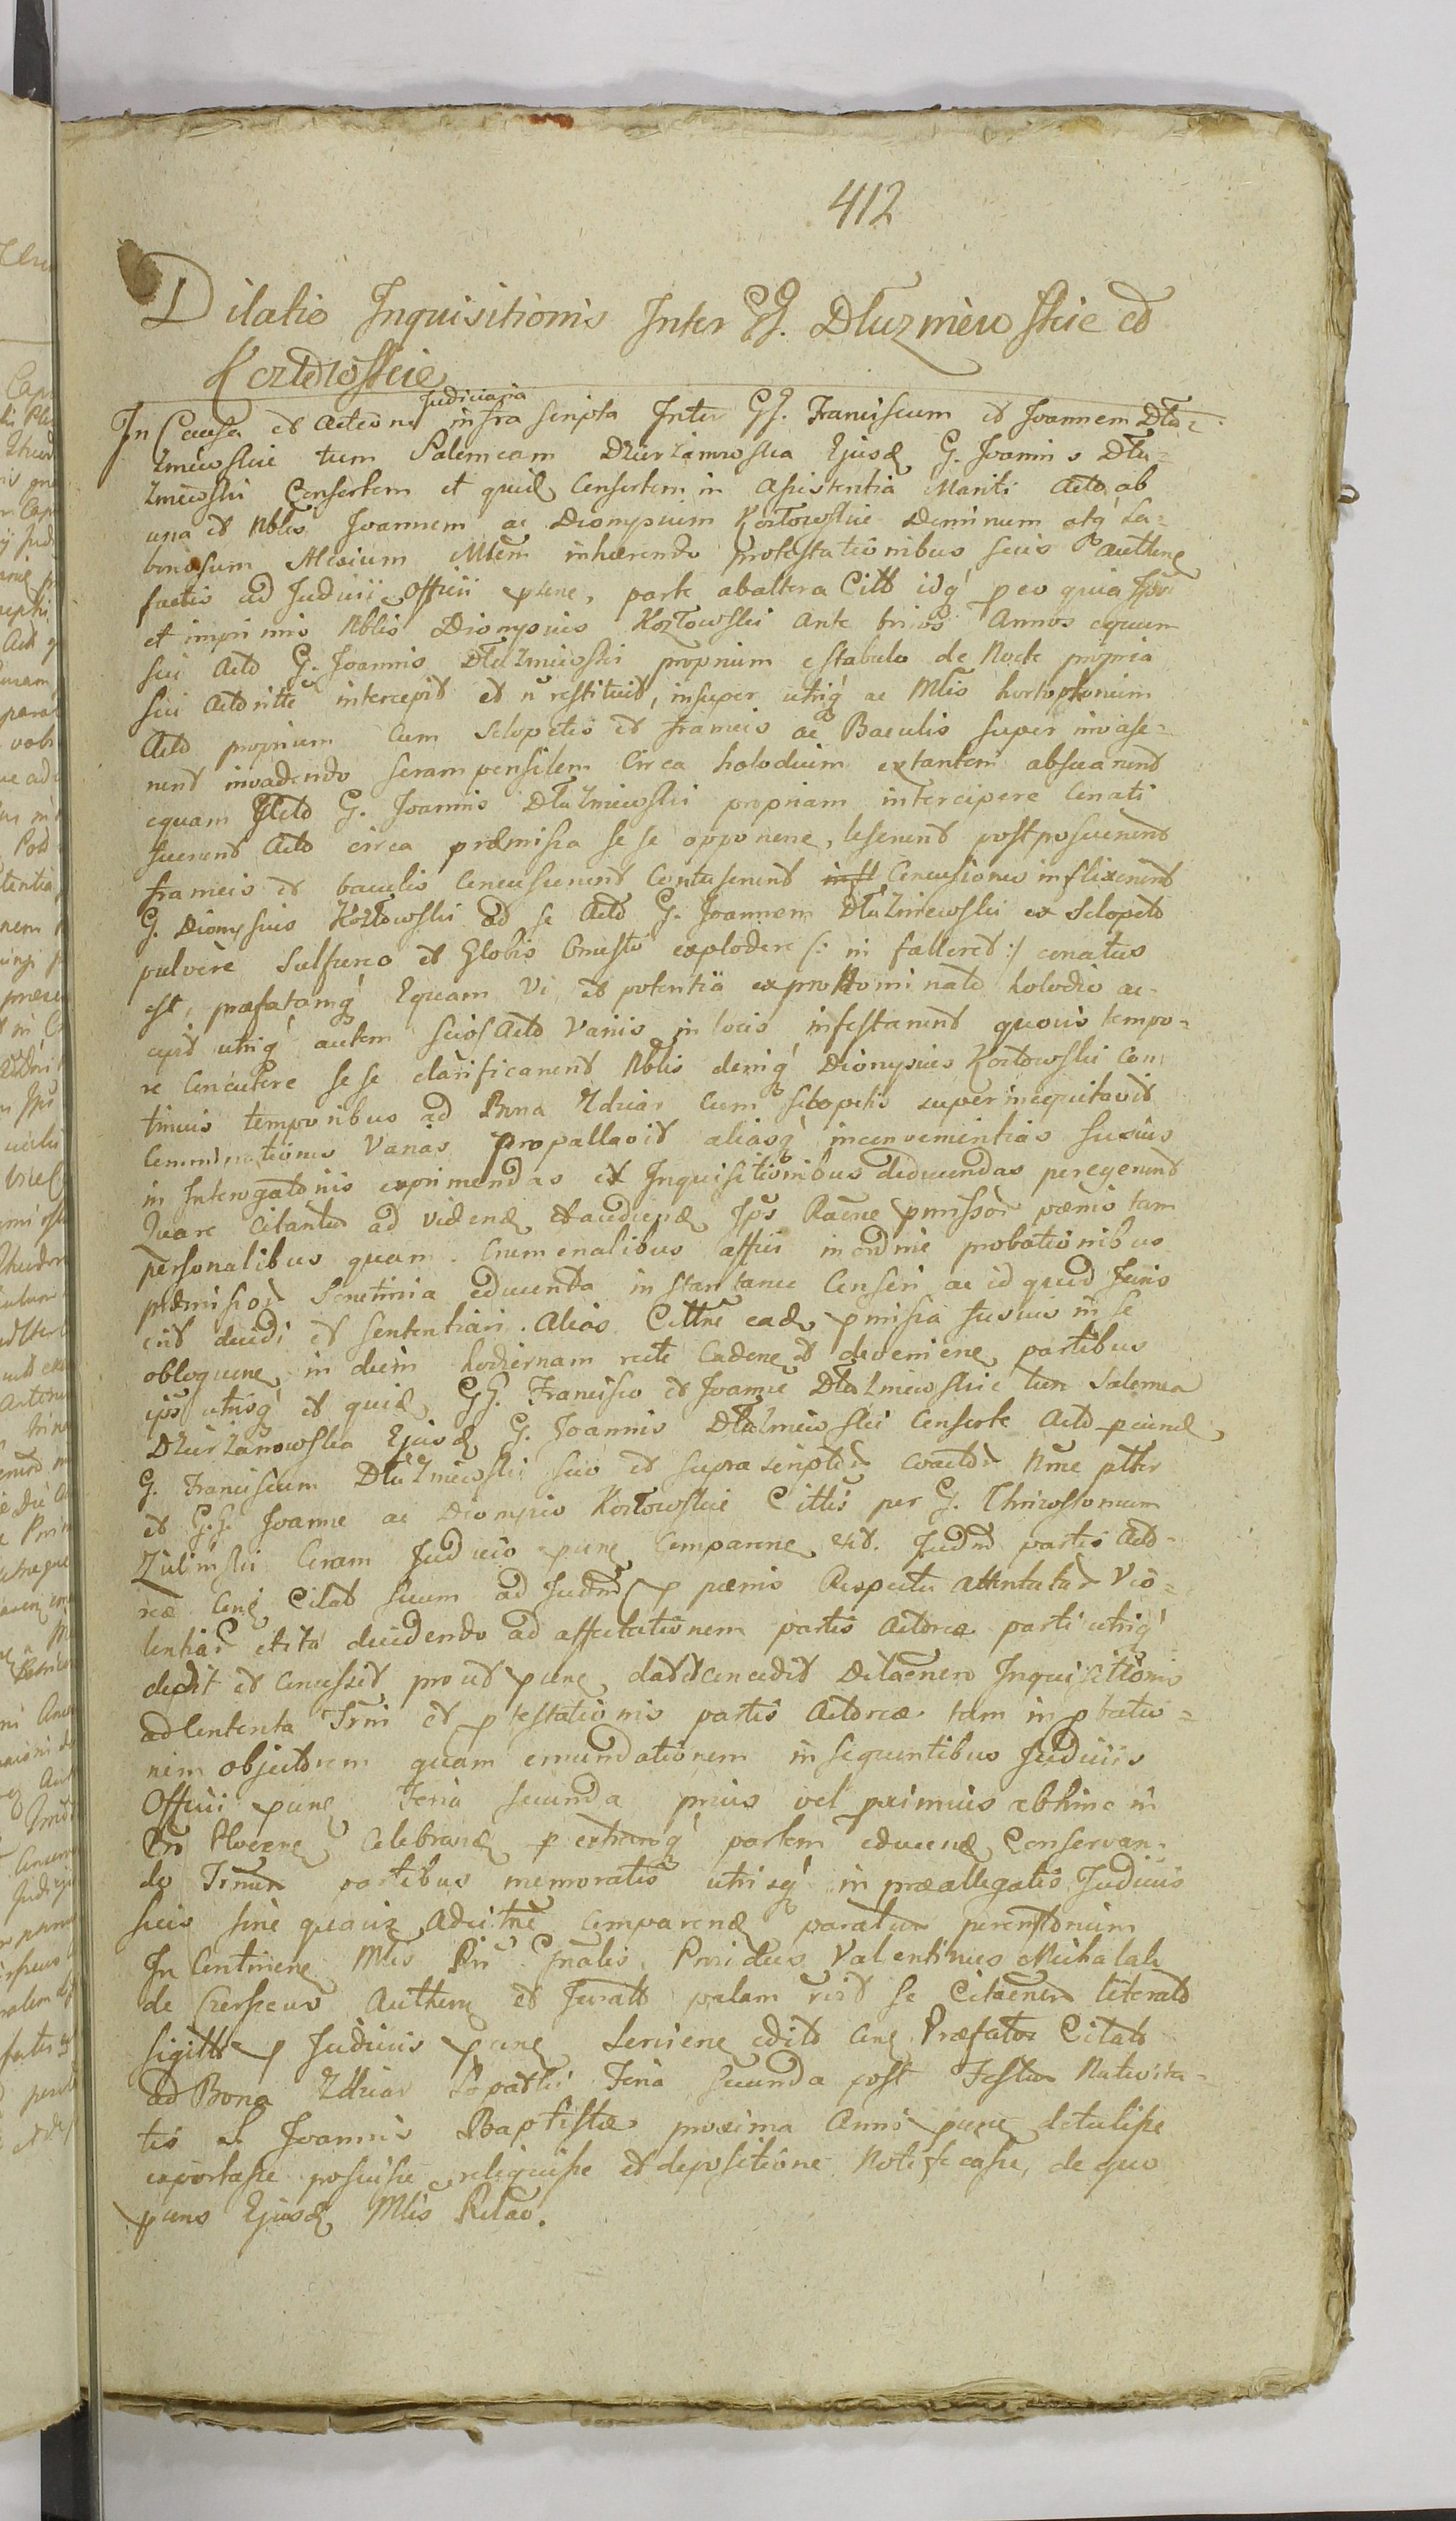 412
Dilatio Inquisitionis Inter GG. Dłuzniewskie et
Kozłowskie
In Causa et Actione Judiciaria infra scripta Inter GG. Franciscum et Joannem Dłu=
żniewskie tum Salomeam Dzierżanowska Ejusd G. Joannis Dłu=
żniewski Consortem et quid Consortem in assistentia Mariti Acto ab
una et Nbles Joannem ac Dionysium Kozłowskie Dominum atq La=
boriosum Mtem inhærendo protestationibus suis authene
factis ad Judicii Officii pñe, parte abaltera Citt idq p eo quia Ipsi
et imprimis Nblis Dionysius Kozłowski ante trinos Annos equum
sui Acto G. Joannis Dłużniewski proprium e stabulo de Nocte propria
sui Act intercepit et ñ restituit, insuper utriq ac Mtis
Acto proprium cum sclopetis et frameis ac Baculis super invase=
runt invadendo seram pensilem circa holodium extantem
equam Acto G. Joannis Dłużniewski propriam intercipere Conati
fuerunt Acto circa præmissa se se opponere, leserunt postposuerunt
frameis et baculis Concusserunt Contuserunt Concusiones inflixerunt
G. Dionysius Kozłowski ad se Acto G. Joannem Dłużniewski ex Sclopeto
pulvere sulfureo et Globis onusto explodere (: ni falleret :) conatus
est, præfatamq Equam Vi et potentia ex holodio ac=
cepit utriq autem suos Acto Variis in locis infestarunt quovis tempo=
re Concutere se se clarificarunt Nblis deniq Dionysius Kozłowski Con
tinuis temporibus ad Bona Zdziar Cum sclopetis superinequitavit
Comminationes Varias propallavit aliasq inconvenientias fusius
in Interogatoriis exprimendas et Inquisitionibus deducendas peregerunt
Quare Citantur ad vidend et audiend Ipos Raõne pmissor pænis tam
personalibus quam Crumenalibus affici in ordine probationibus
præmissor educenda Censeri ac id quid Juris
erit decidi et sententiari. Alias Cittñe ead pmissa fusius in se
obloquene, in diem hodiernam recte Cadene et deveniene, partibus
ips utrisq et quid GG. Francisco et Joanne Dłużniewskie tum Salomea
Dzierżanowska Ejusd G. Joannis Dłużniewski Consorte Acto p eund
G. Franciscum Dłużniewski suo et suprascriptor coactor Nñe ptter
et G.G. Joanne ac Dionysio Kozłowskie Cittis per G. Chrisostomum
Zieliński Coram Judicio pñe Comparene, est. Judm partis Act=
reæ Citat suum ad Judm p pænis Respectu attentatar Vio=
lentiar et ita decidendo ad affectationem partis Actoreæ parti utriq
dedit et Concessit prout pñe dat et concedit Dilaõnem Inquisitionis
ad Contenta Trni et ptestationis partis Actoreæ tam in pbatio=
nem objectorum quam emundationem in sequentibus Judiciis
Officii pñe Feria secunda prius vel proximius abhinc in
Cro Plocene Celebrand p utramq partem educend Conservan=
do Trmũ partibus memoratis utrisq in præallegatis Judiciis
suis sine quavis Adcitñe Comparend paratum peremptorium
In Continene Mtis Rñ Gñalis Providus Valentinus Michalak
de authene et Juratt palam rect se Citaõnem literat
sigillt p Judiciis pñe, Serviene edit Præfator Citat
ad Bona Zdziar Łopatki Feria secunda post Festum Nativita=
tis S. Joannis Baptistæ proxima Anni pñe detulisse
exportasse posuisse reliquisse et depositione Notificasse, de quo
pñs Ejusd Mtis Relaõ.